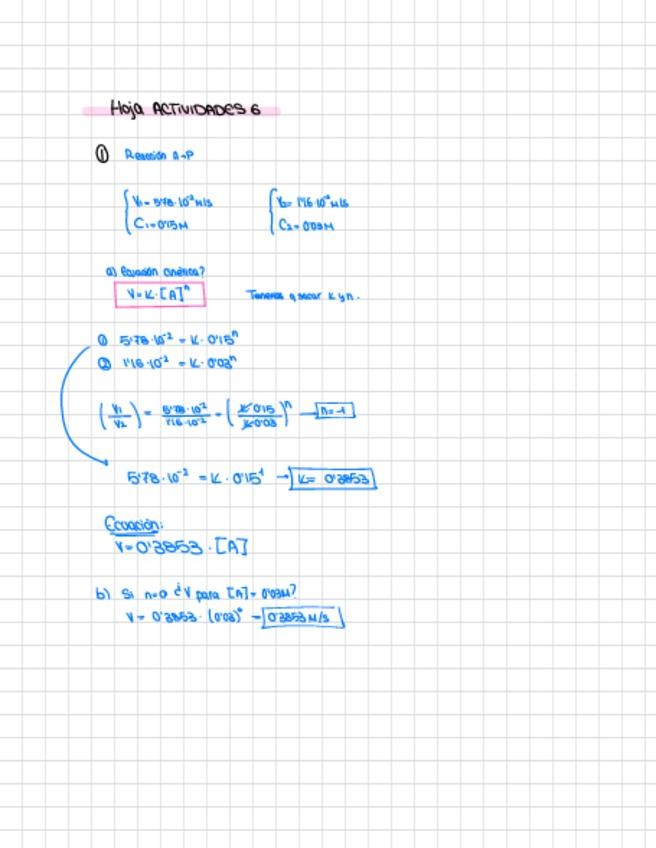 Hoja ACTIVIDADES 6
① Reacción A→P
V₁= 5'78·10⁻² M/s
C₁=0'15M
V₂= 1'16·10⁻² M/s
C₂=0'03M
a) Ecuación cinética?
V=K·[A]ⁿ Tenemos q sacar K y n.
① 5'78·10⁻² = K·0'15ⁿ
② 1'16·10⁻² = K·0'03ⁿ
(V₁/V₂) = 5'78·10⁻²/1'16·10⁻² = (K·0'15/K·0'03)ⁿ → n=1
5'78·10⁻² = K·0'15¹ → K= 0'3853
Ecuación:
V=0'3853·[A]
b) Si n=0 ¿V para [A]=0'03M?
V= 0'3853·(0'03)⁰ = 0'3853 M/s